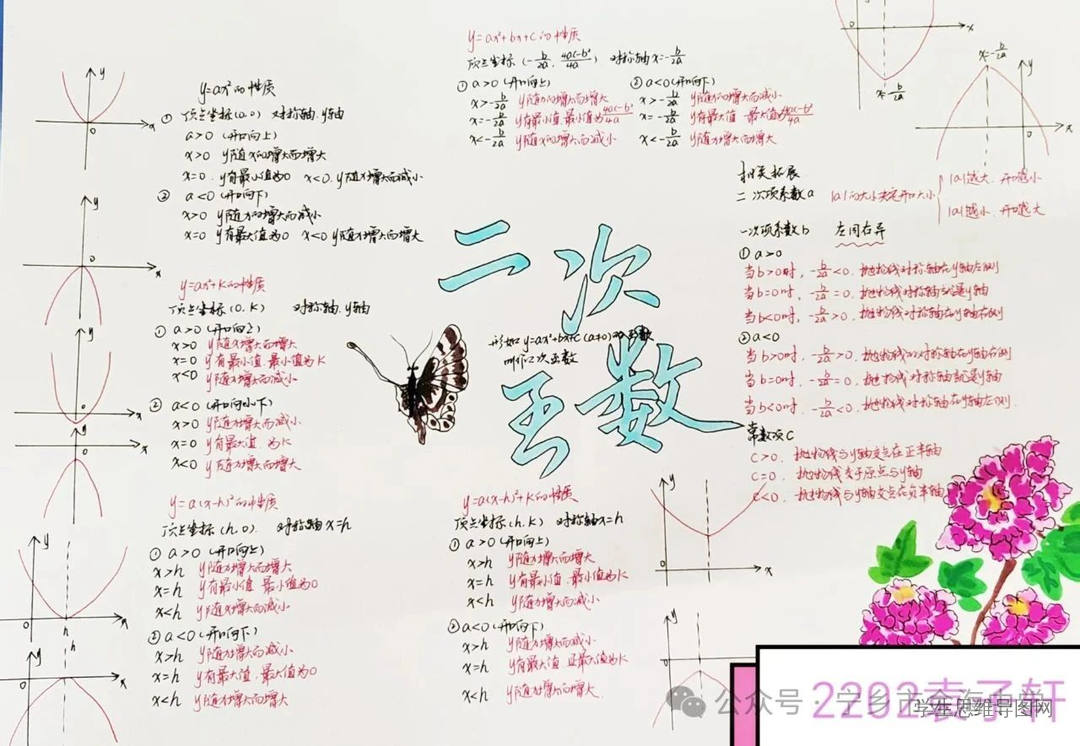 y=ax²的性质
① 顶点坐标(0,0) 对称轴:y轴
a>0 (开口向上)
x>0 y随x的增大而增大
x=0. y有最小值为0 x<0. y随x增大而减小
② a<0 (开口向下)
x>0 y随x的增大而减小
x=0 y有最大值为0 x<0 y随x增大而增大
y=ax²+k的性质
顶点坐标(0,k) 对称轴:y轴
① a>0 (开口向上)
x>0 y随x增大而增大
x=0 y有最小值,最小值为k
x<0 y随x增大而减小
② a<0 (开口向下)
x>0 y随x增大而减小
x=0 y有最大值 为k
x<0 y随x增大而增大
y=a(x-h)²的性质
顶点坐标(h,0) 对称轴x=h
① a>0 (开口向上)
x>h y随x增大而增大
x=h y有最小值 最小值为0
x<h y随x增大而减小
② a<0 (开口向下)
x>h y随x增大而减小
x=h y有最大值,最大值为0
x<h y随x增大而增大
y=ax²+bx+c的性质
顶点坐标 (-b/2a, 4ac-b²/4a) 对称轴x=-b/2a
① a>0 (开口向上)
x>-b/2a y随x的增大而增大
x=-b/2a y有最小值.最小值为4ac-b²/4a
x<-b/2a y随x的增大而减小
② a<0 (开口向下)
x>-b/2a y随x的增大而减小
x=-b/2a y有最大值 最大值为4ac-b²/4a
x<-b/2a y随x增大而增大
二次
形如y=ax²+bx+c(a≠0)的函数
叫作二次函数
数
y=a(x-h)²+k的性质
顶点坐标(h,k) 对称轴x=h
① a>0 (开口向上)
x>h y随x增大而增大
x=h y有最小值.最小值为k
x<h y随x增大而减小
② a<0 (开口向下)
x>h y随x增大而减小
x=h y有最大值 且最大值为k
x<h y随x增大而增大
相关拓展
二次项系数a |a|的大小决定开口大小
|a|越大.开口越小
|a|越小.开口越大
一次项系数b 左同右异
① a>0
当b>0时,-b/2a<0.抛物线对称轴在y轴左侧
当b=0时,-b/2a=0.抛物线对称轴就是y轴
当b<0时,-b/2a>0.抛物线对称轴在y轴右侧
② a<0
当b>0时,-b/2a>0.抛物线的对称轴在y轴右侧
当b=0时,-b/2a=0.抛物线对称轴就是y轴
当b<0时.-b/2a<0.抛物线对称轴在y轴左侧.
常数项C
C>0. 抛物线与y轴交点在正半轴
C=0. 抛物线
C<0. 抛物线与y轴交点在负半轴
x=-b/2a
x=-b/2a
y
x
0
h
公众号·宁乡市金海中学
学生思维导图网
2202袁子轩